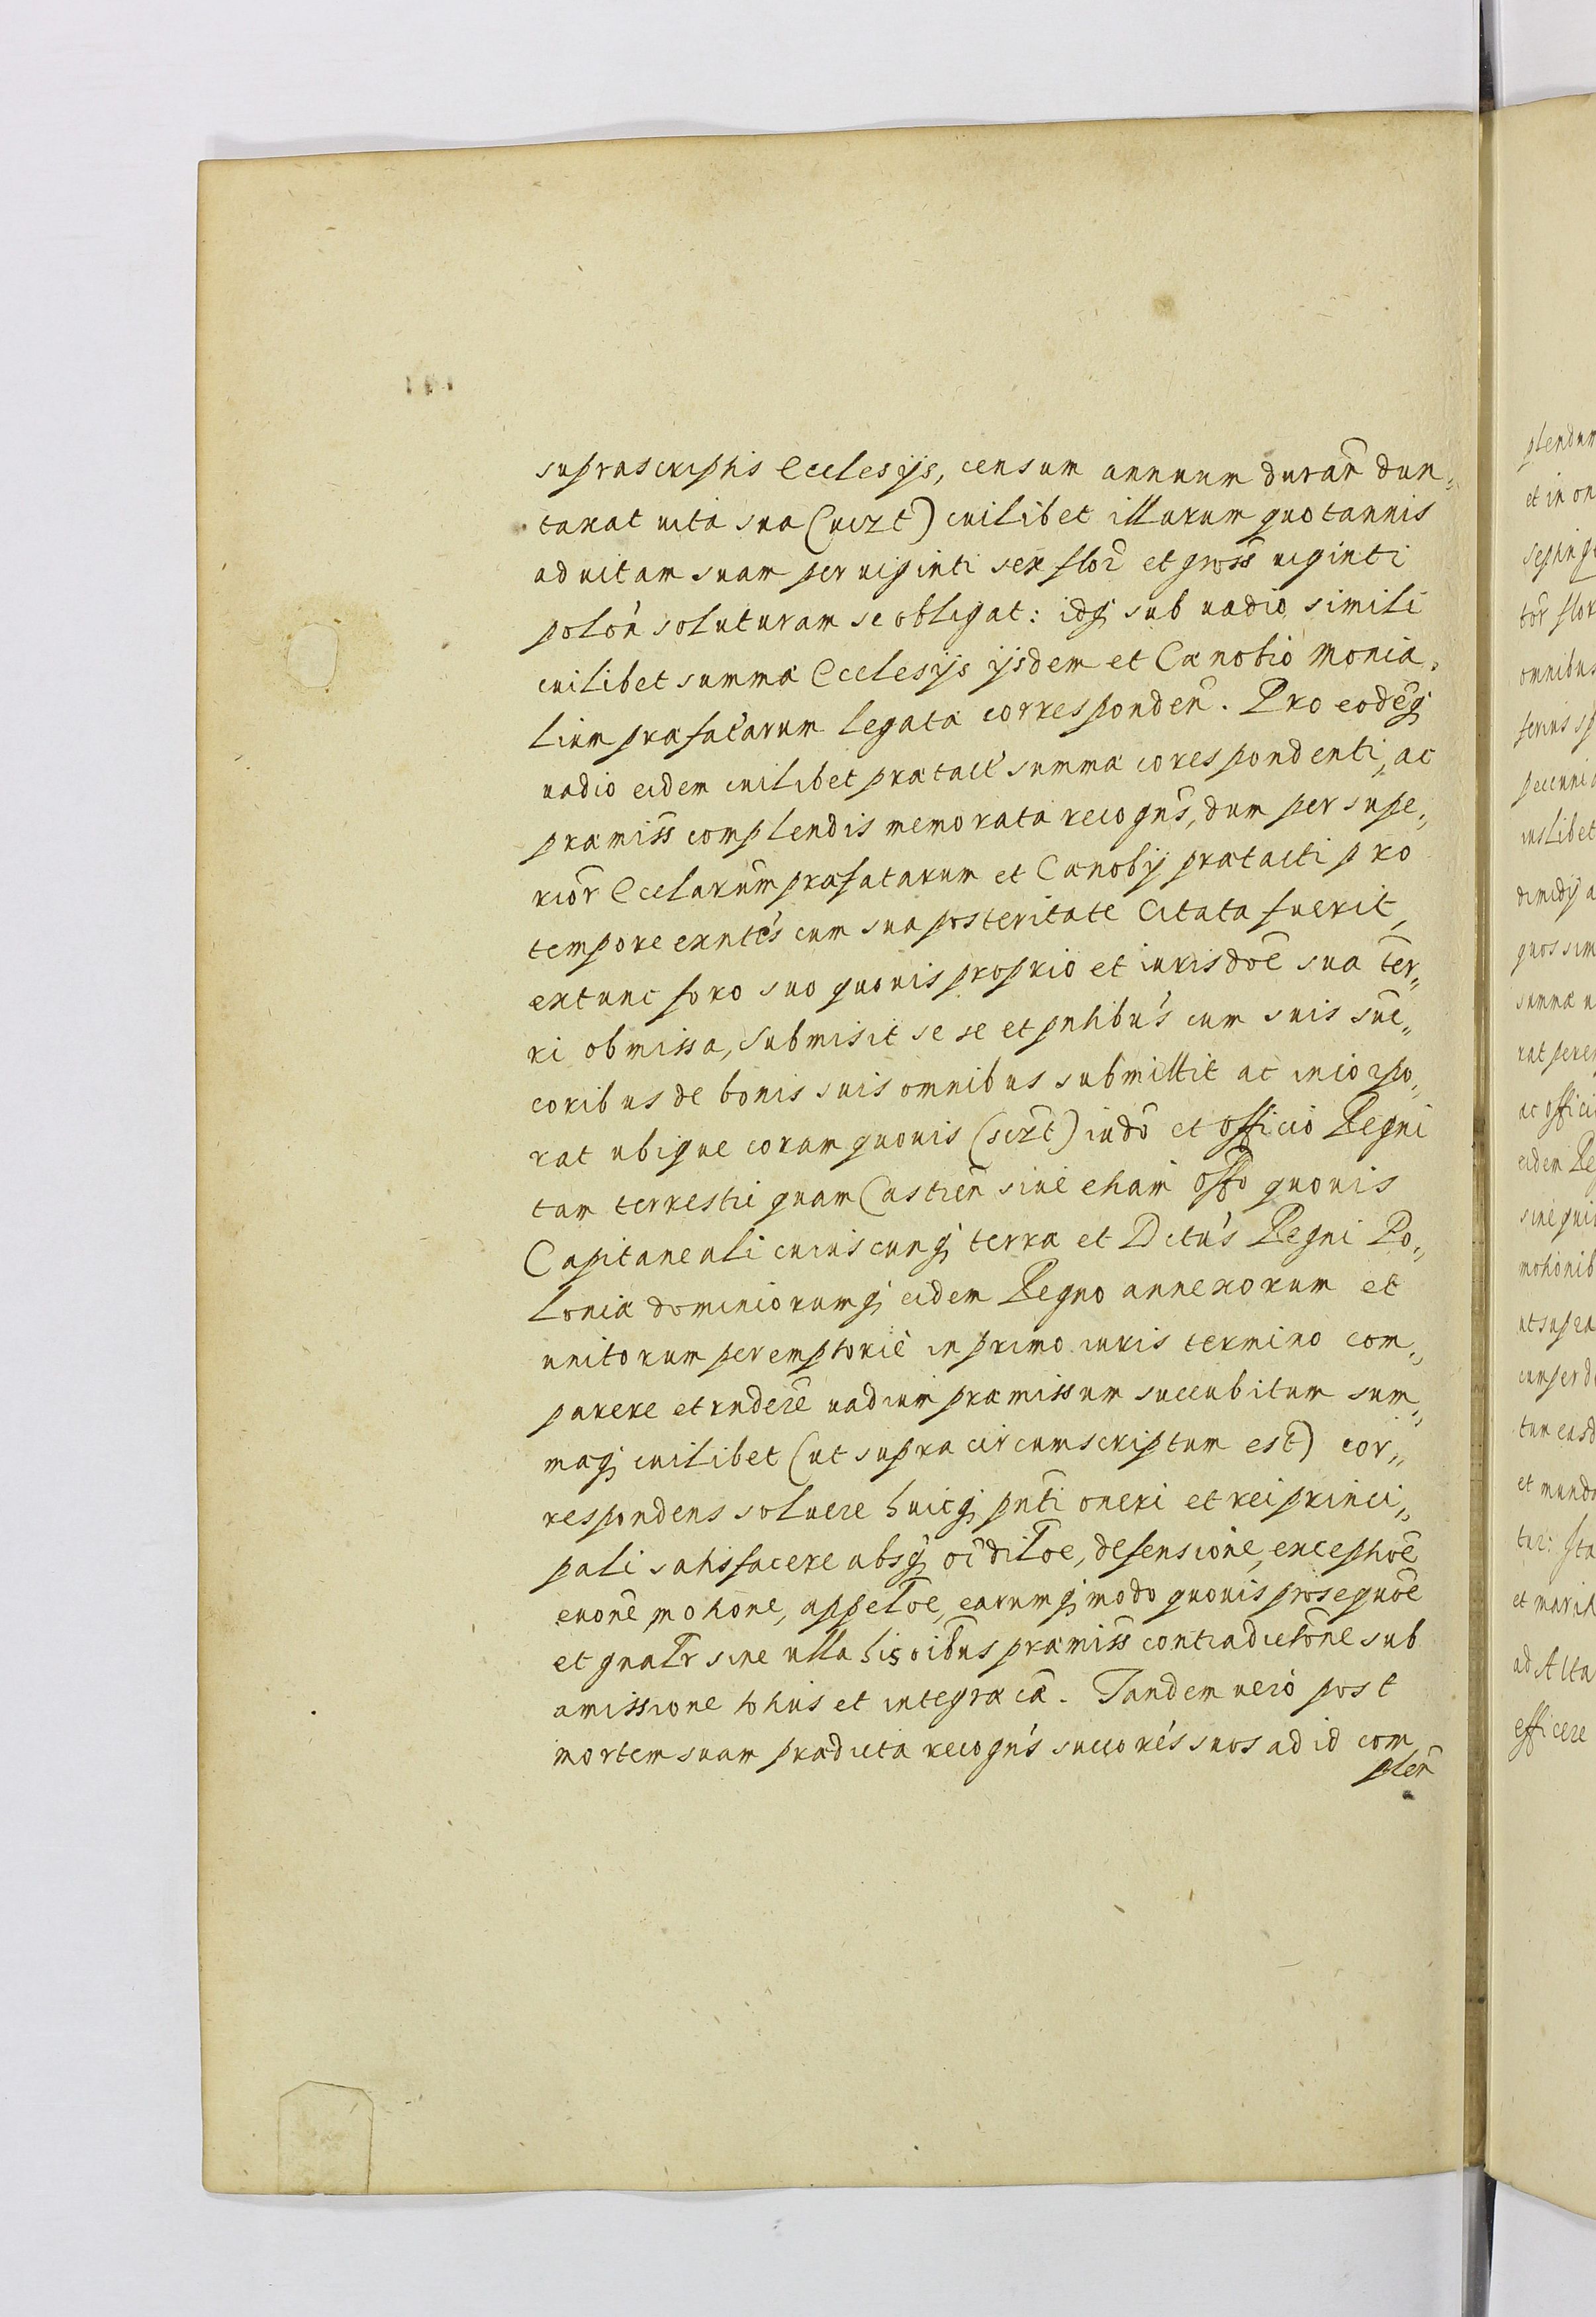 suprascriptis Ecclesijs, censum annuum durañ dun„
taxat uita sua (uizt) cuilibet illarum quotannis
ad uitam suam per uiginti sex flor̃ et gross̃ uiginti
poloñ soluturam se obligat: idq; sub uadio simili
cuilibet summæ Ecclesijs ijsdem et Cænobio Monia„
lium præfatarum legatæ corresponden̄. Pro eodēq;
uadio eidem cuilibet prætact̃ summæ corespondenti, ac
præmiss̃ complendis memorata recogn̄s, dum per supe„
rior̃ Ecclarum̄ præfatarum et Cænobij prætacti pro
tempore exn̄tes cum sua posteritate Citata fuerit,
extunc foro suo quouis proprio et iurisdōē sua ter̄„
ri obmissa, submisit se se et pn̄tibus cum suis suc̄„
coribus de bonis suis omnibus submittit ac incorpo„
rat ubique coram quouis (scizt) iudō et officio Regni
tam terrestri quam Castreñ siue etiam offō quouis
Capitaneali cuiuscunq; terræ et Dctūs Regni Po„
loniæ dominiorumq; eidem Regno annexorum et
unitorum peremptoriè in primo iuris termino com„
parere et rndere uadium præmissum succubitum sum„
mæq; cuilibet (ut supra circumscriptum est) cor„
respondens soluere huicq; pn̄ti oneri et rei princi„
pali satisfacere absq; oī diltōe, defensione, exceptiōe
euone motione, appeltōe, earumq; modo quouis prosequōe
et gnaltr sine ulla his oībus præmiss̃ contradictōne sub
amissione totius et integræ cæ. Tandem uerò post
mortem suam prædicta recogn̄s succores suos ad id com
plen̄